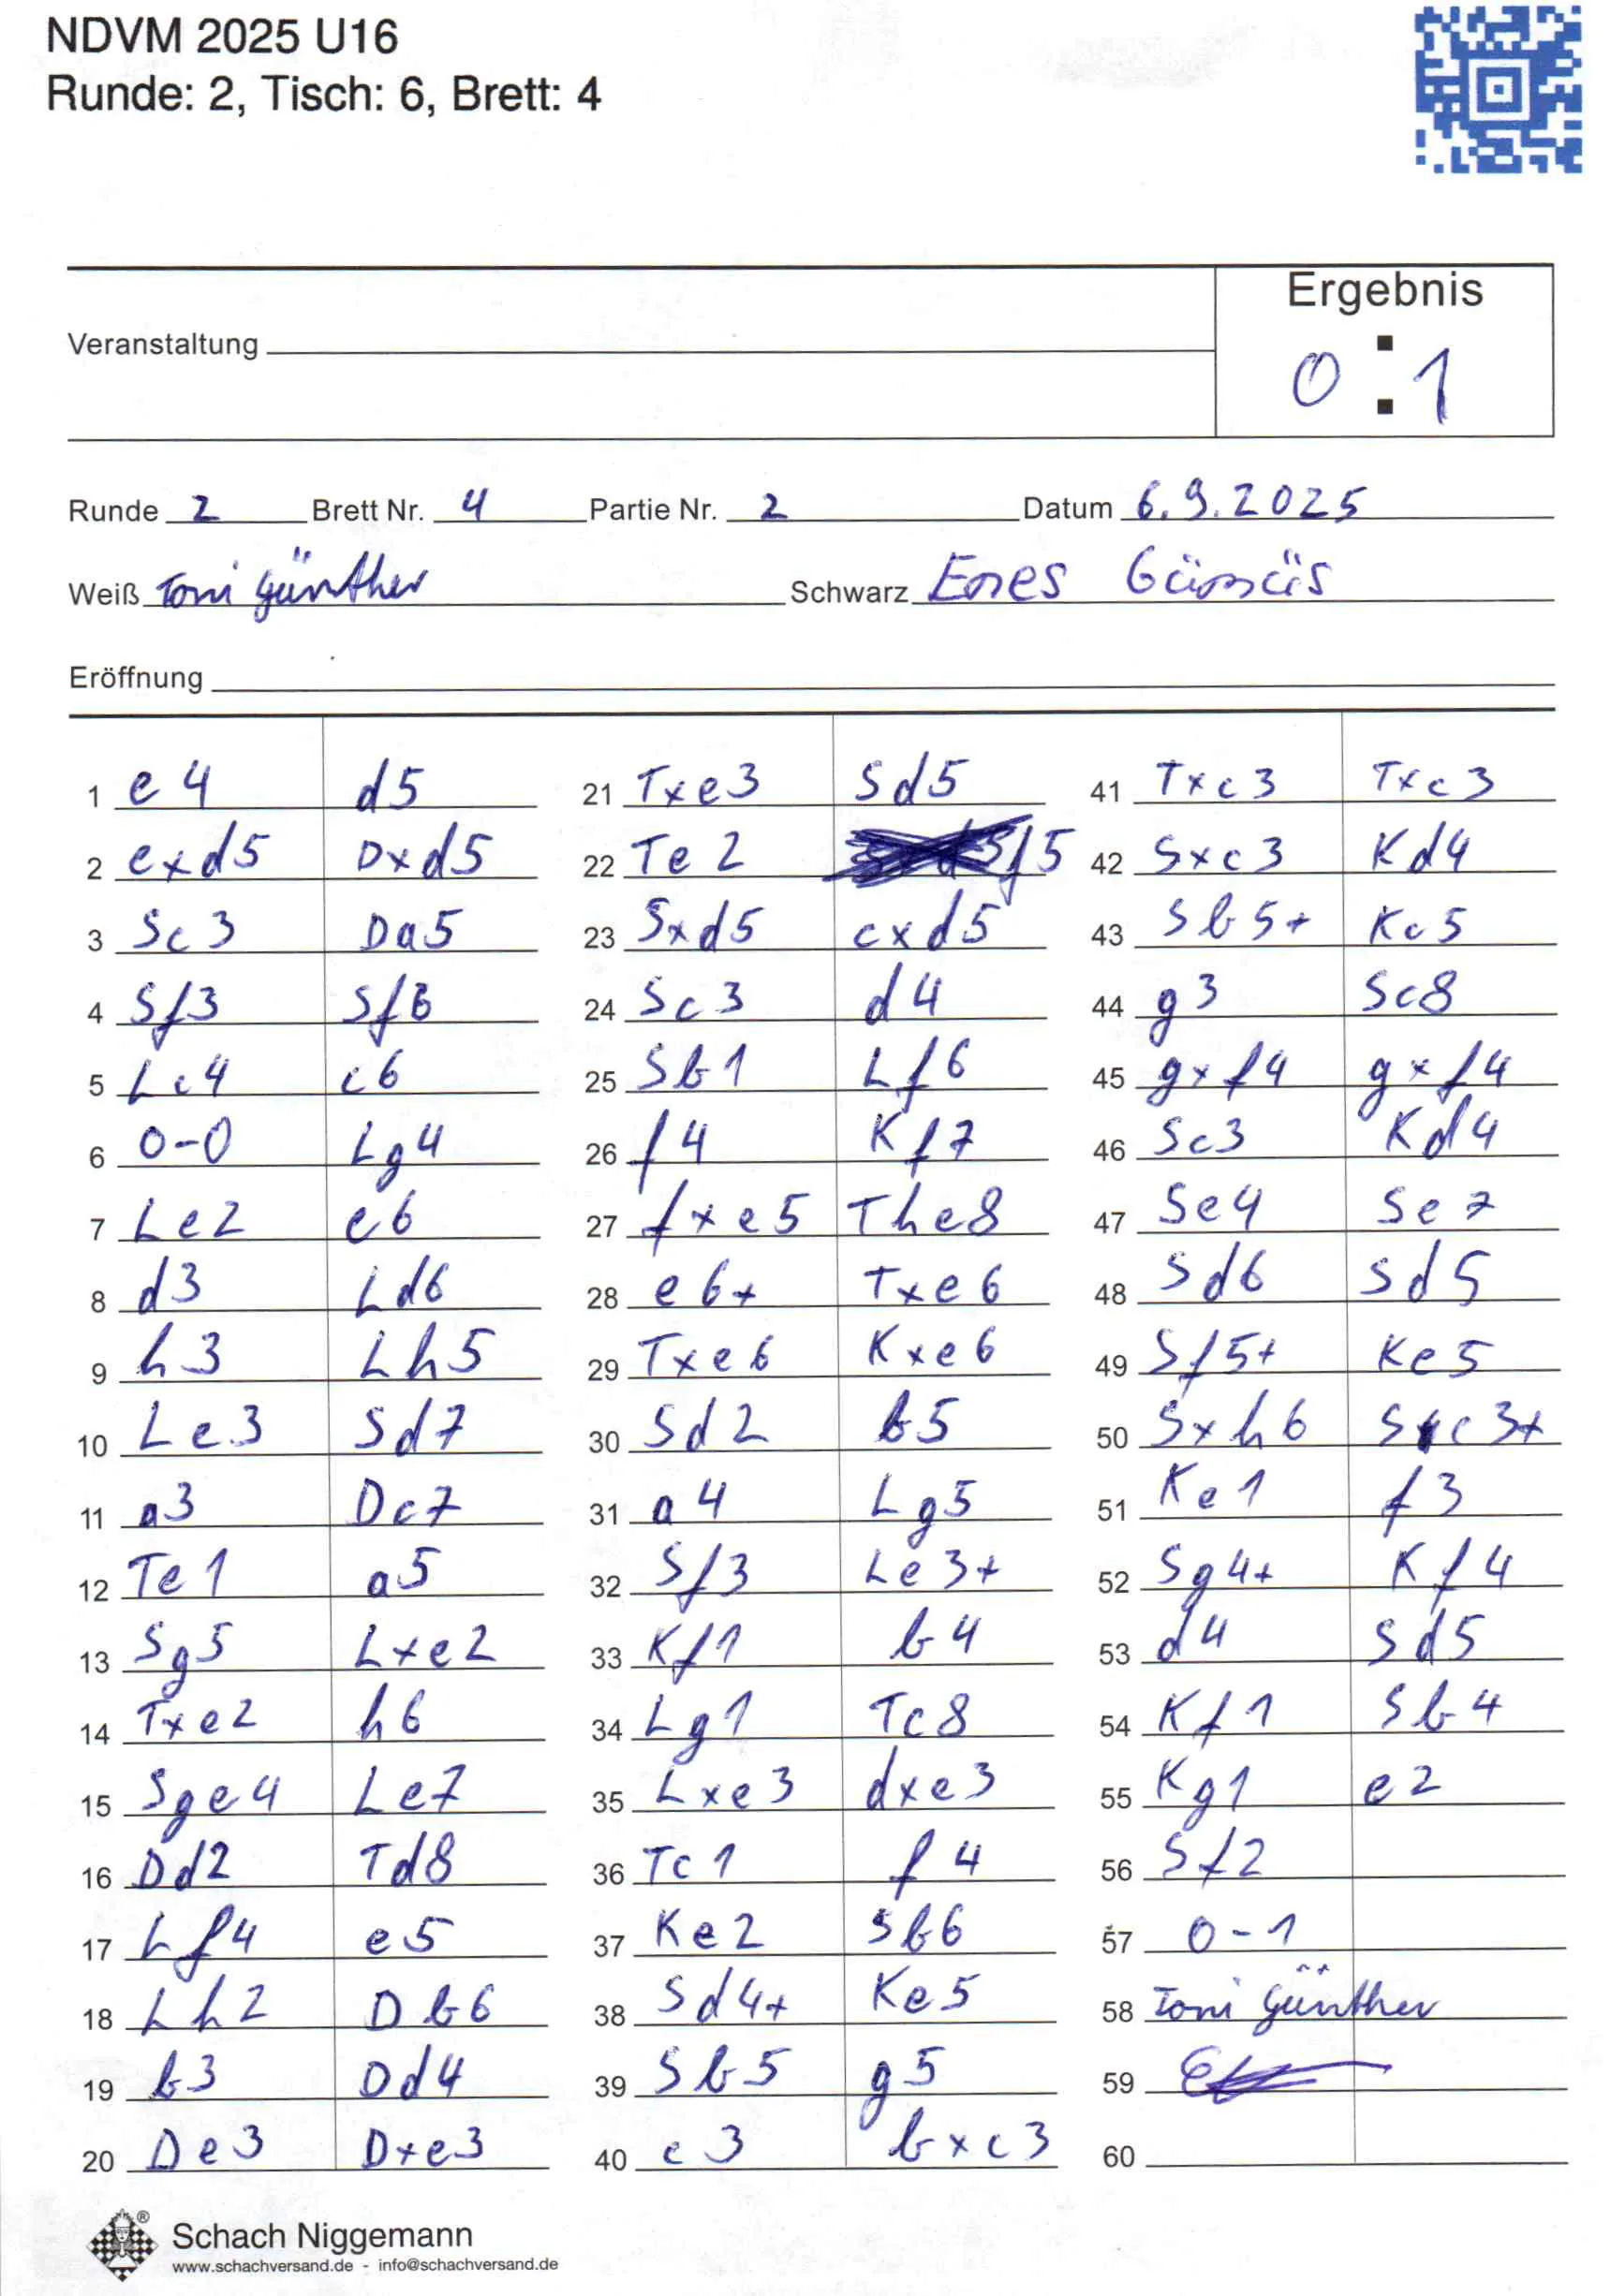 NDVM 2025 U16
Runde: 2, Tisch: 6, Brett: 4
Ergebnis
Veranstaltung
0 : 1
Runde 2 Brett Nr. 4 Partie Nr. 2 Datum 6.9.2025
Weiß Toni Günther Schwarz Enes Gümüs
Eröffnung
1 e4 d5
2 exd5 Dxd5
3 Sc3 Da5
4 Sf3 Sf6
5 Lc4 c6
6 0-0 Lg4
7 Le2 e6
8 d3 Ld6
9 h3 Lh5
10 Le3 Sd7
11 a3 Dc7
12 Te1 a5
13 Sg5 Lxe2
14 Txe2 h6
15 Sge4 Le7
16 Dd2 Td8
17 Lf4 e5
18 Lh2 Db6
19 b3 Dd4
20 De3 Dxe3
21 Txe3 Sd5
22 Te2 f5
23 Sxd5 cxd5
24 Sc3 d4
25 Sb1 Lf6
26 f4 Kf7
27 fxe5 The8
28 e6+ Txe6
29 Txe6 Kxe6
30 Sd2 b5
31 a4 Lg5
32 Sf3 Le3+
33 Kf1 b4
34 Lg1 Tc8
35 Lxe3 dxe3
36 Tc1 f4
37 Ke2 Sb6
38 Sd4+ Ke5
39 Sb5 g5
40 c3 bxc3
41 Txc3 Txc3
42 Sxc3 Kd4
43 Sb5+ Kc5
44 g3 Sc8
45 gxf4 gxf4
46 Sc3 Kd4
47 Se4 Se7
48 Sd6 Sd5
49 Sf5+ Ke5
50 Sxh6 Sc3+
51 Ke1 f3
52 Sg4+ Kf4
53 d4 Sd5
54 Kf1 Sb4
55 Kg1 e2
56 Sf2
57 0-1
58 Toni Günther
59
60
®
Schach Niggemann
www.schachversand.de - info@schachversand.de